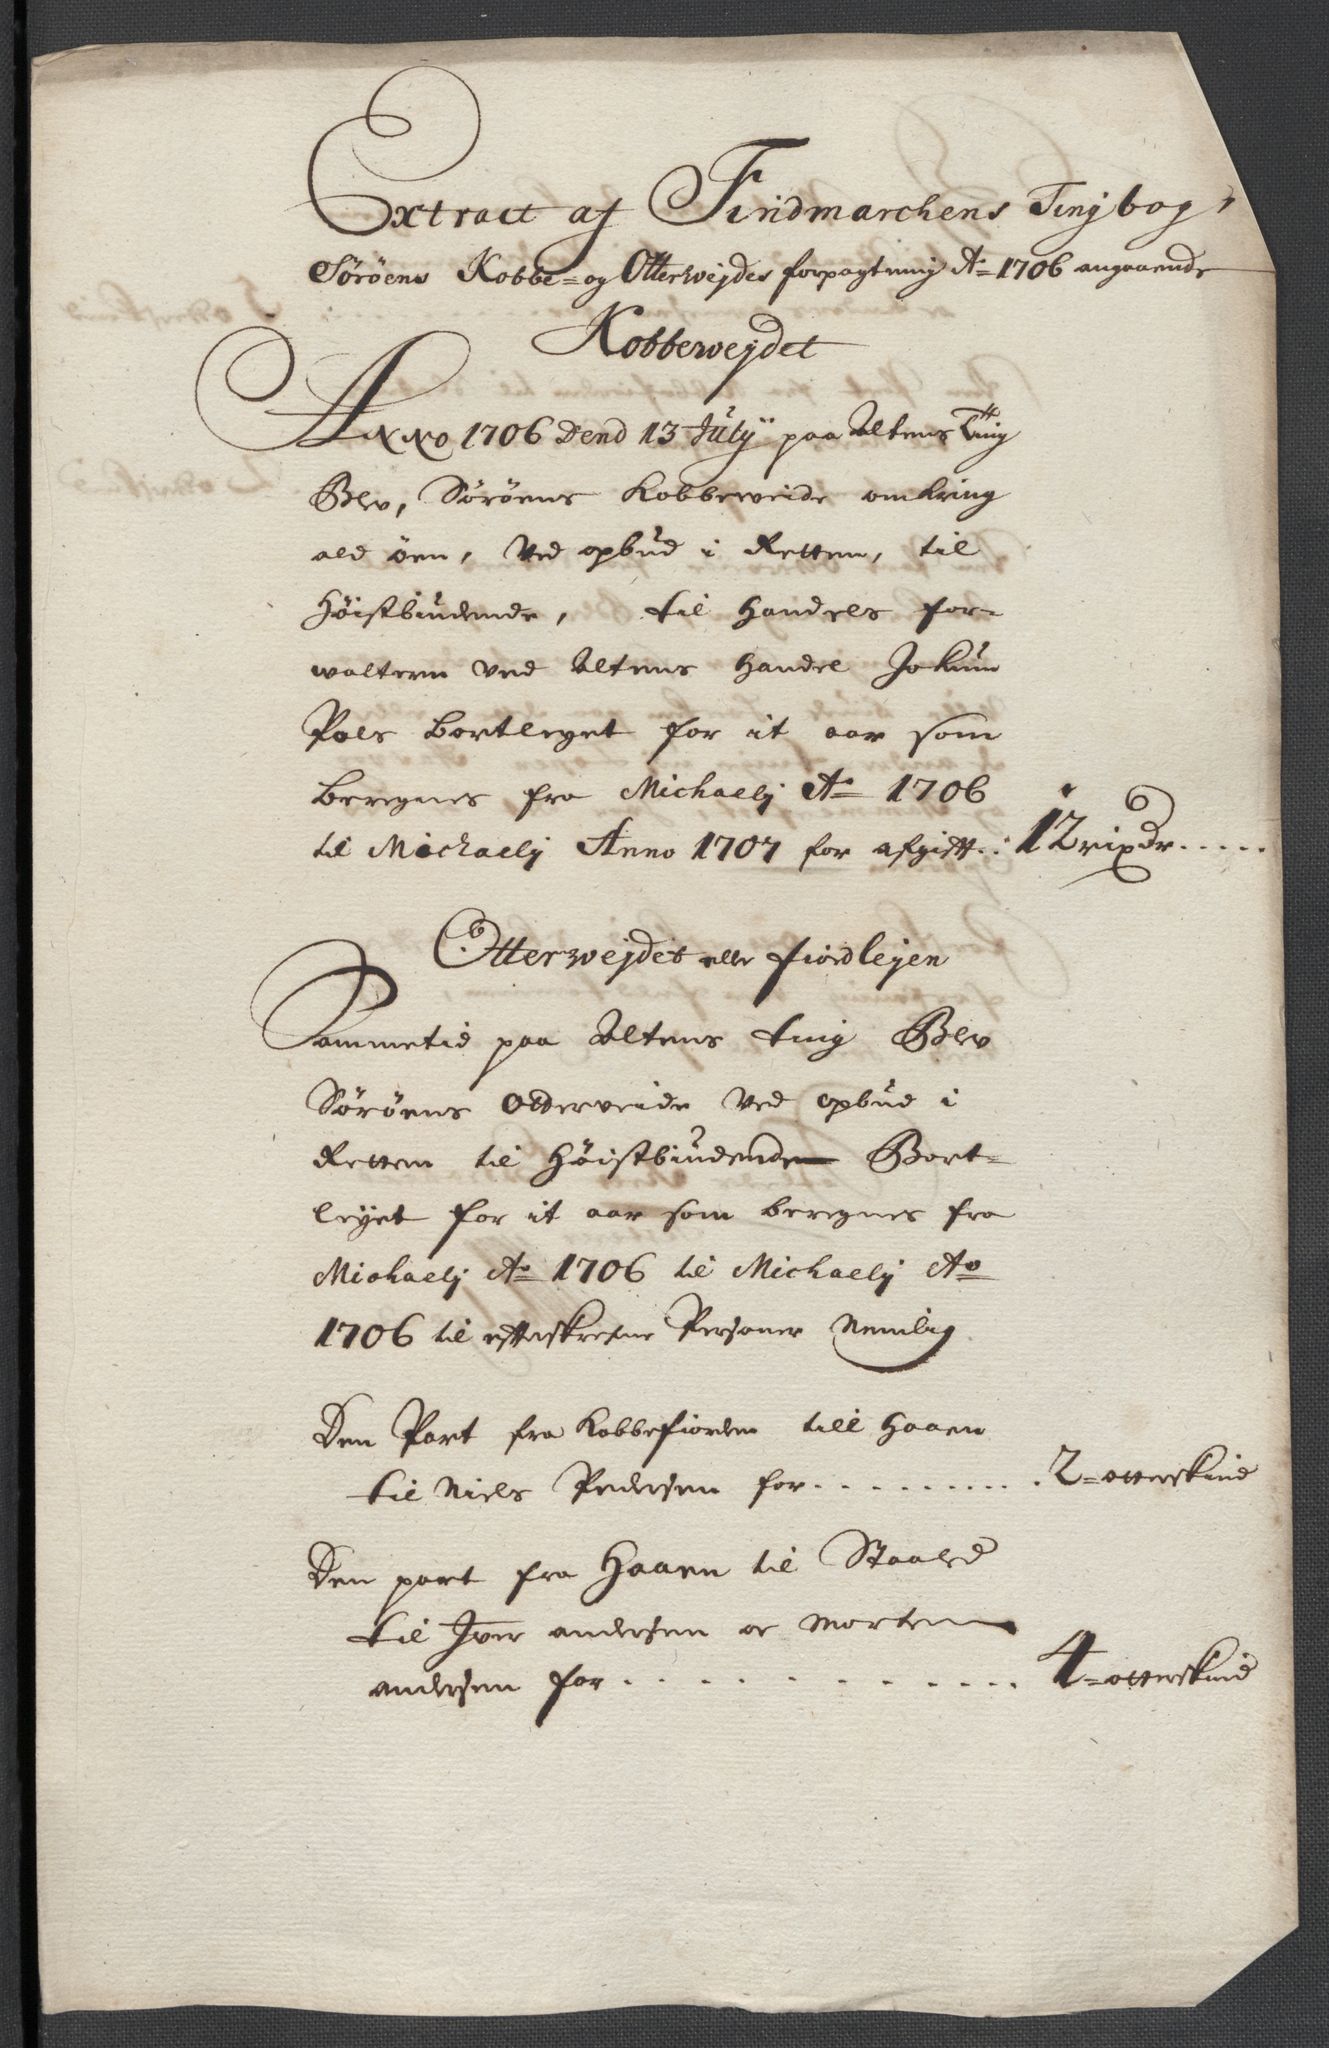 Extract af Findmarchens Tingbog,
Sørøens Kobbe= og Otterwejdes forpagtning Ao 1706 angaaende
Kobbewejdet
ANNO 1706 Dend 13 July paa Altens Ting
Blev, Sørøens Kobbeweide omkring
ald øen, Ved opbud i Retten, til
Høistbiudende, til Handels for-
waltern ved Altens Handel Jokum
Pols Bortleyet for it aar som
Beregnes fra Michaelj Ao 1706
til Michaelj Anno 1707 for afgift. 12 rixdr.....
Otterwejdet eller fiordlejen
Sammetid paa Altens ting Blev
Sørøens Otterveide ved opbud i
Retten til Høistbiudende Bort-
leyet for it aar som beregnes fra
Michaelj Ao 1706 til Michaelj Ao
1706 til efterskrefne Personer Nemlig
Den Part fra Kobbefiorden till Haaen
til Niels Pedersen for.......... 2=otterskind
Den part fra Haaen til Staalet
til Iver andersen oc Morten
andersen for............ 4=otterskind